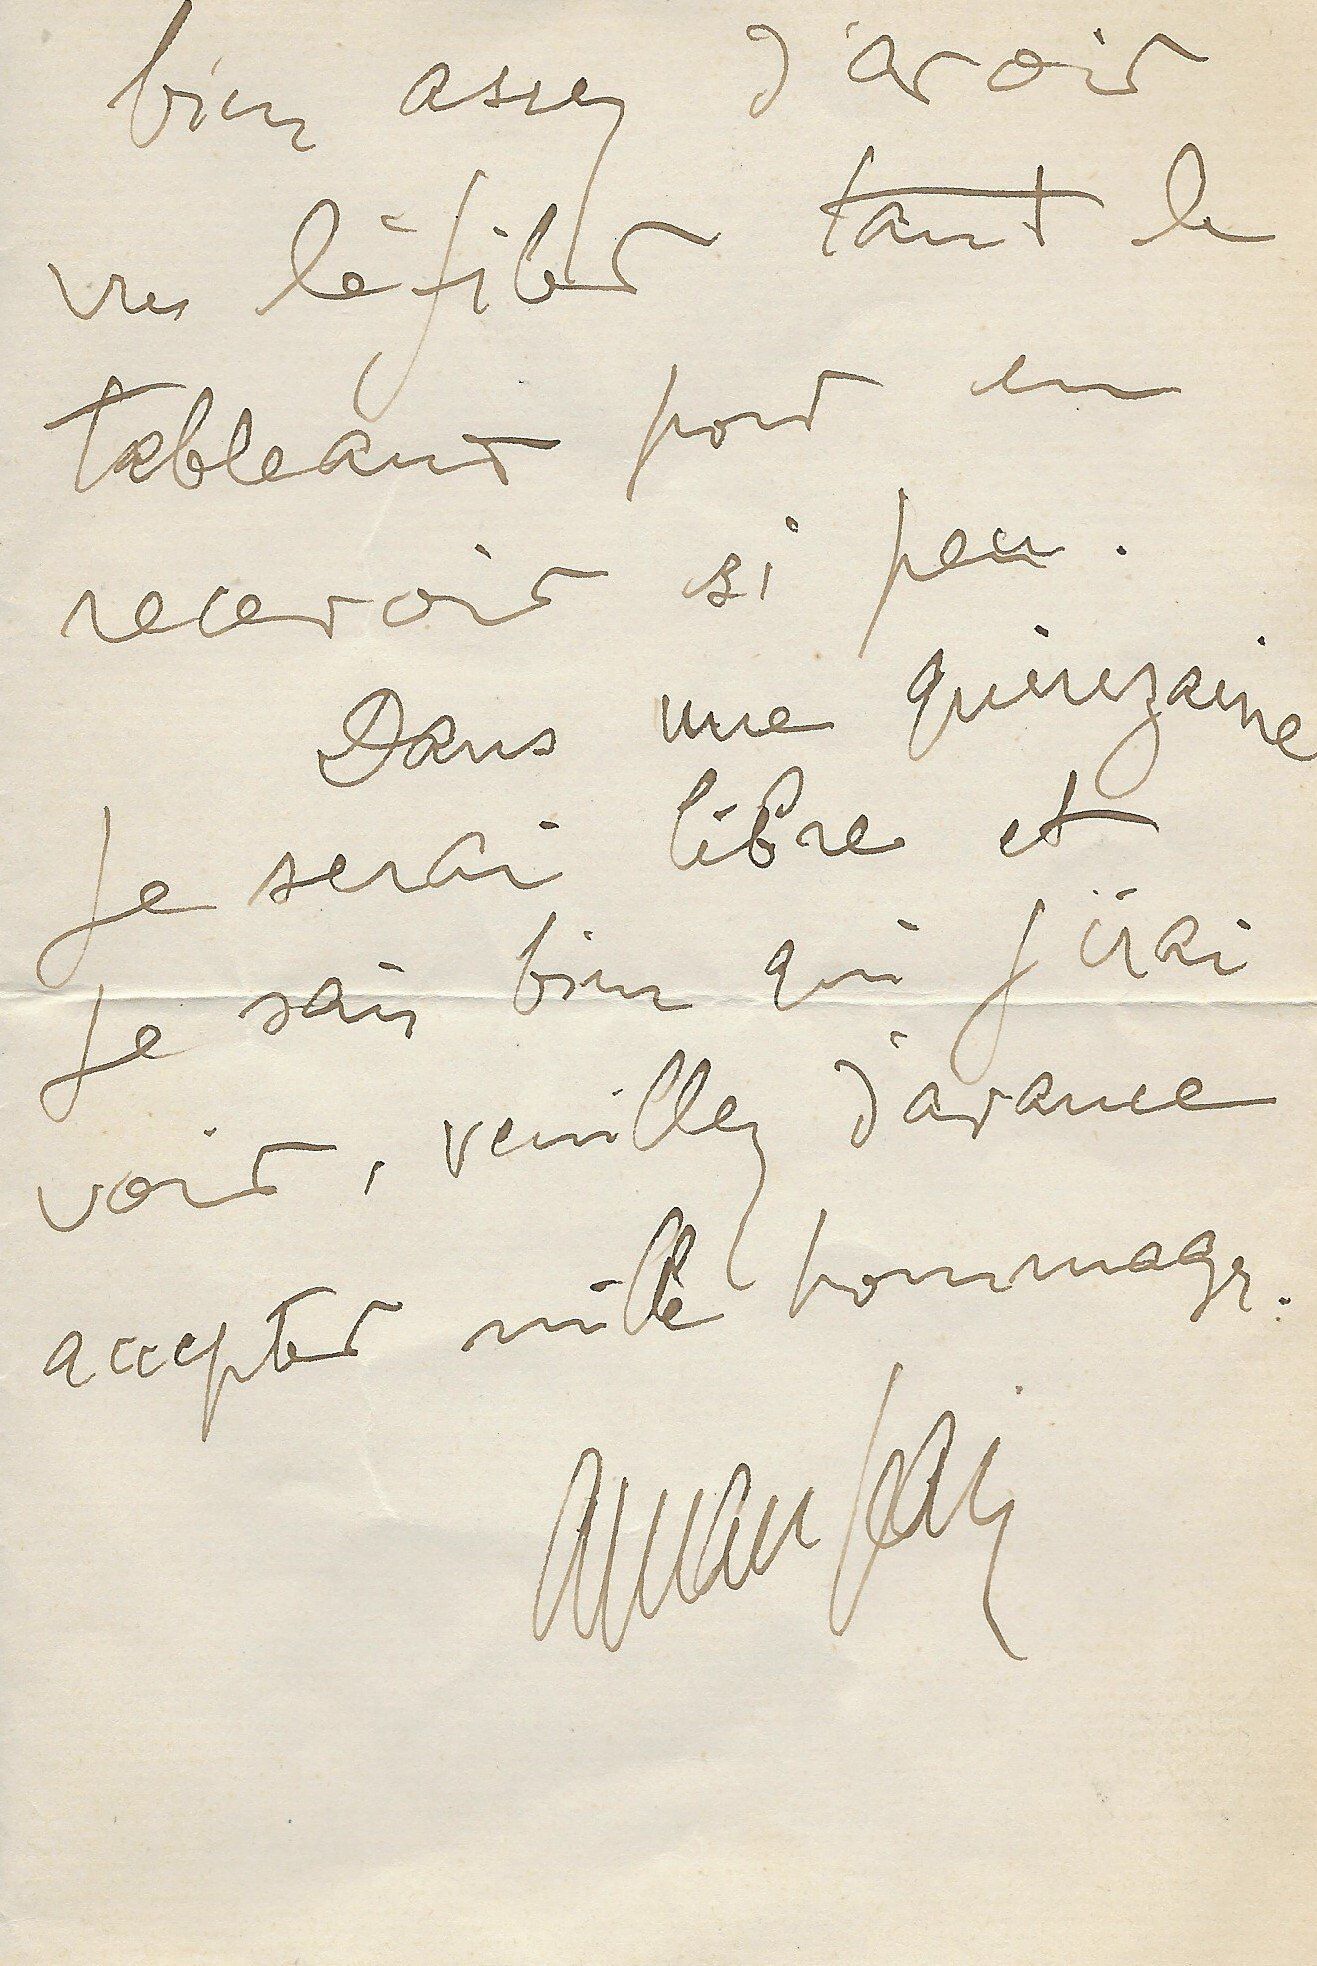 bien assez d'avoir
vu défiler tant de
tableaux pour en
recevoir si peu.
Dans une quinzaine
je serai libre et
je sais bien qui j'irai
voir, veuillez d'avance
accepter mille hommages.